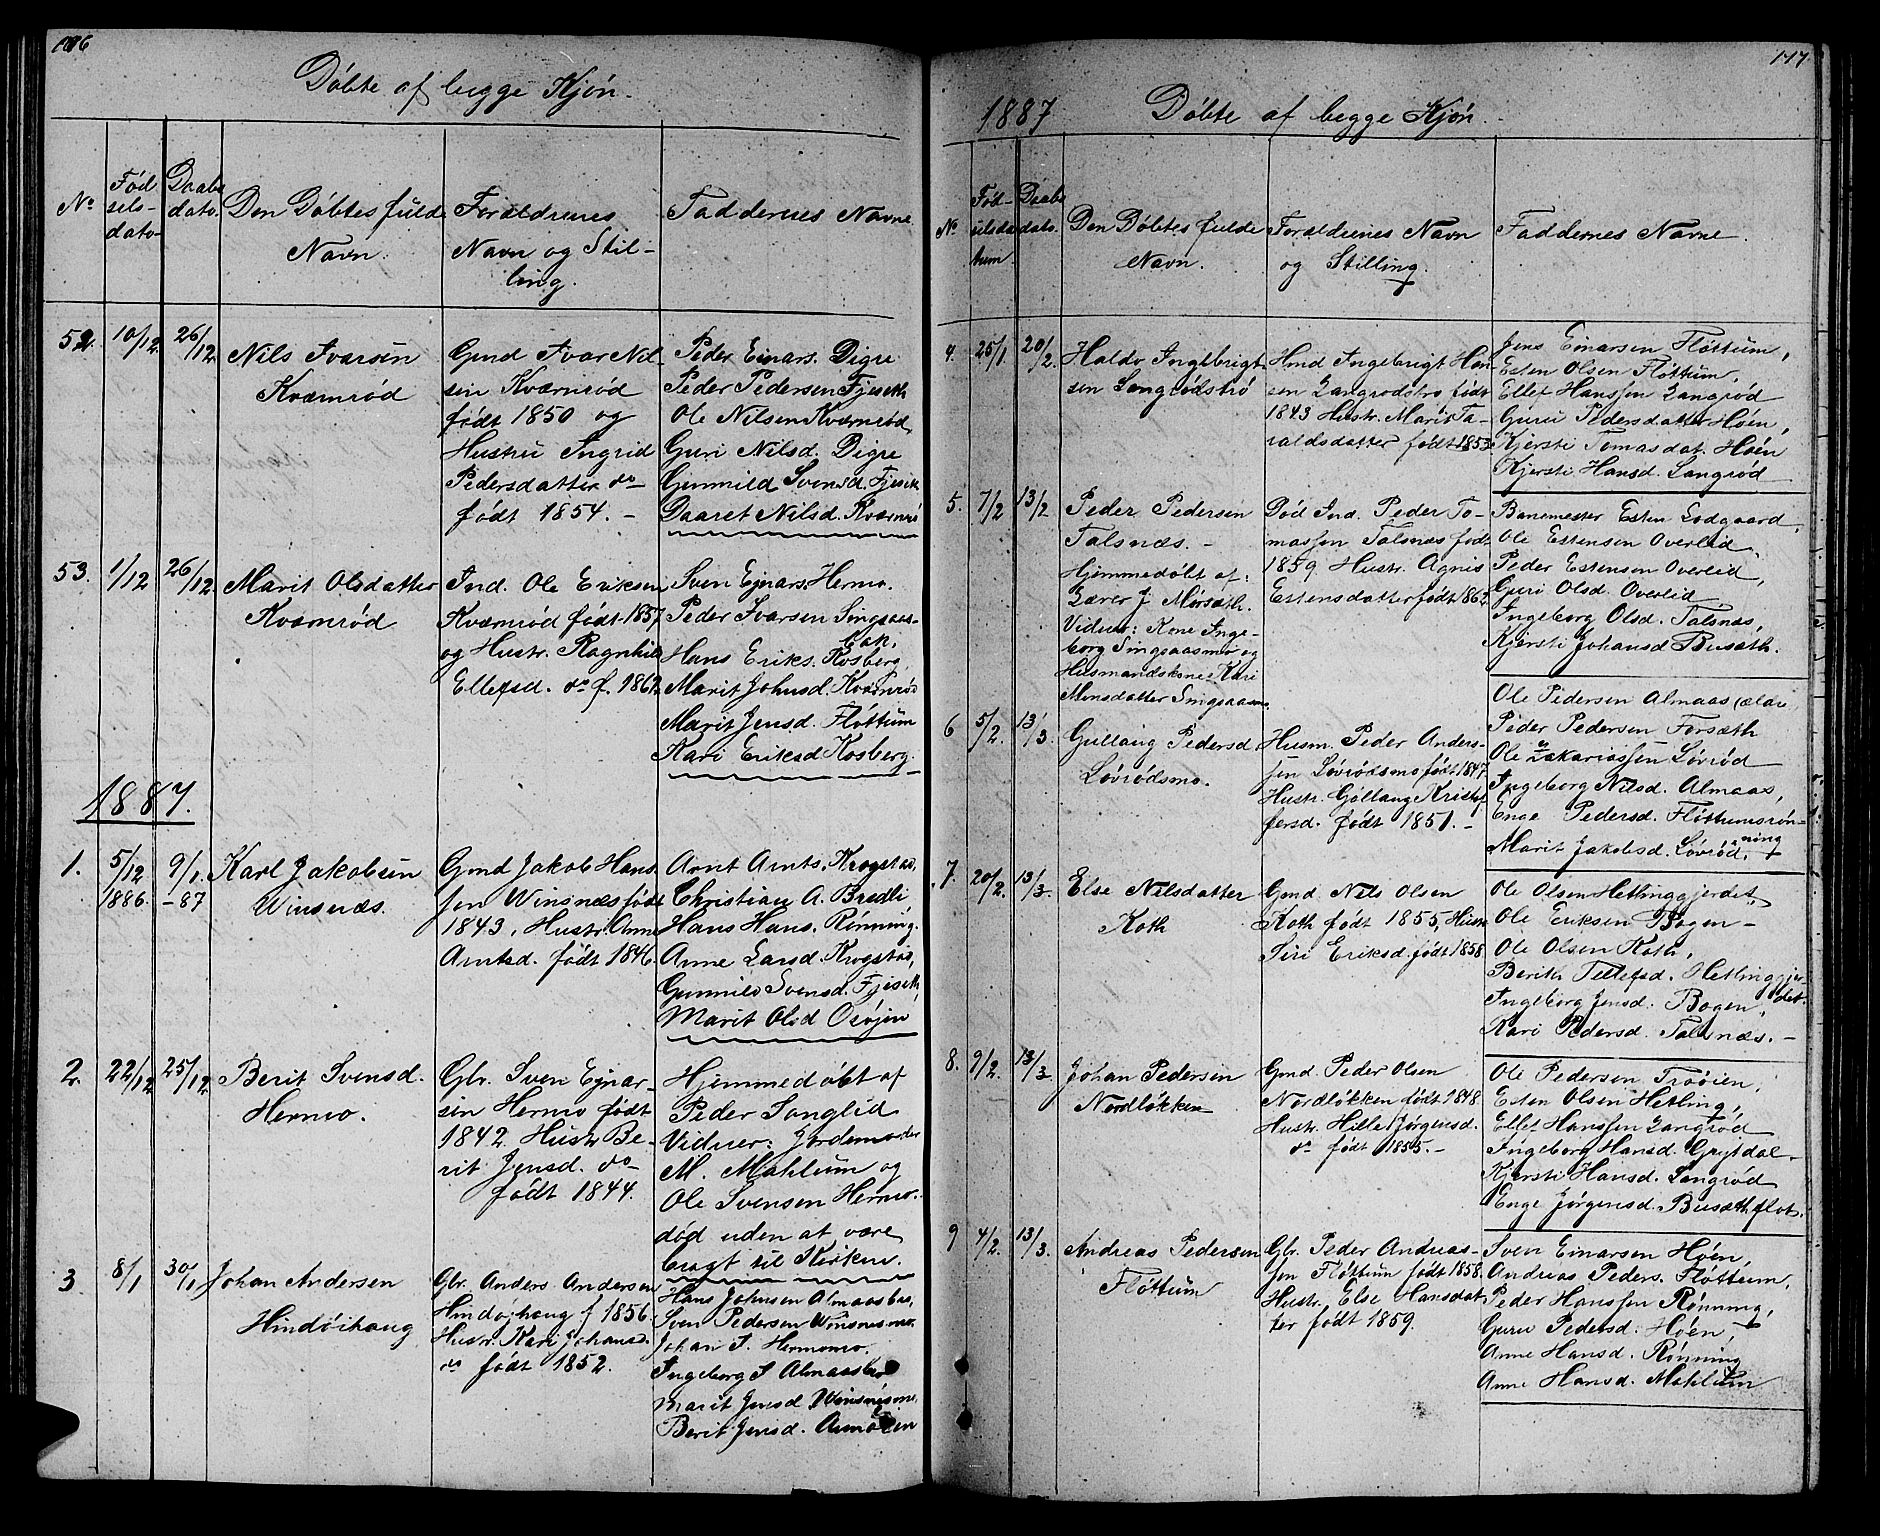 Døbte af begge Kjøn.
No
Fødselsdato
Daabsdato.
Den Døbtes fulde
Navn.
Forældrenes
Navn og Stil-
ling.
Faddernes Navne
52. 10/12. 26/12.
Nils Ivarsen
Kværnrød
Gmd Ivar Nil-
sen Kværnrød
født 1850 og
Hustru Ingrid
Pedersdatter do
født 1854. -
Peder Einars. Digre
Peder Pedersen Fjeseth
Ole Nilsen Kværnrød
Guri Nilsd. Digre
Gunnild Svensd. Fjeseth
Daaret Nilsd. Kværnrø
53. 1/12 26/12.
Marit Olsdatter
Kværnrød
Ind. Ole Eriksen
Kværnrød født 1857
og Hustr. Ragnhild
Ellefsd. do f. 1862
Sven Ejnars. Hermo.
Peder Ivarsen Singsaas-
bak.
Hans Eriks. Kosberg
Marit Johnsd. Kværnrød
Marit Jensd. Fløttum
Kari Eriksd Kosberg.
1887.
1. 5/12 1886. 9/1. -87
Karl Jakobsen
Winsnæs.
Gmd Jakob Hans
sen Winsnæs født
1843, Hustr. Anne
Arntsd. født 1846.
Arnt Arnts. Krogstad,
Christian A. Bredli
Hans Hans. Rønning.
Anne Larsd. Krogstad,
Gunnild Svensd. Fjeseth,
Marit Olsd Osøjen
2. 22/12 25/12
Berit Svensd.
Hermo.
Gbr. Sven Ejnar-
sen Hermo født
1842. Hustr Be-
rit Jensd. do
født 1844.
Hjemmedøbt af
Peder Langlid
Vidner: Jordemoder
M. Mahlum og
Ole Svensen Hermo.
død uden at være
bragt til Kirken.
3 8/1 30/1
Johan Andersen
Hindøihaug
Gbr. Anders Andersen
Hindøjhaug f 1856
Hustr. Kari Johansd.
do født 1852.
Hans Johnsen Almaasbak,
Sven Pedersen Winsnesmo,
Johan S. Hermomo.
Ingeborg I Almaasbak
Marit Jensd Winsnesmo,
Berit Jensd.
147
1887 Døbte af begge Kjøn.
No
Fødselsdatum
Daabsdato.
Den Døbtes fulde
Navn.
Forældrenes Navn
og Stilling.
Faddernes Navne.
4. 25/1 20/2.
Haldo Ingebrigt
sen Langrødstrø
Hmd Ingebrigt Han
sen Langrødstrø født
1843 Hustr. Marit Ta-
raldsdatter født 1853
Jens Einarsen Fløttum,
Esten Olsen Fløttum,
Ellef Hanssen Langrød
Guru Pedersdatter Høen,
Kjersti Tomasdat. Høen
Kjersti Hansd. Langrød
5. 7/2 13/2
Peder Pedersen
Talsnæs. -
Hjemmedøbt af:
Lærer J Morsæth.
Vidner: Kone Inge-
borg Singsaasmo og
Husmandskone Kari
Monsdatter Singsaasmo.
Død Ind. Peder To-
massen Talsnæs født
1859 Hustr. Agnis
Estensdatter født 1862
Banemester Esten Lodgaard,
Ole Estensen Overlid
Peder Estensen Overlid,
Guri Olsd. Overlid
Ingeborg Olsd. Talsnæs,
Kjersti Johansd Busæth.
6 5/2. 13/3.
Gullaug Pedersd
Løvrødsmo.
Husm. Peder Anders-
sen Løvrødsmo født 1847
Hustr. Göllaug Kristof
fersd. født 1851. -
Ole Pedersen Almaas (ældre,
Peder Pedersen Forsæth
Ole Zakariassen Løvrød
Ingeborg Nilsd. Almaas,
Enge Pedersd. Fløttumsrøn-
ning
Marit Jakobsd. Løvrød,
7. 20/2. 13/3.
Else Nilsdatter
Koth
Gmd. Nils Olsen
Koth født 1855, Hustr
Siri Eriksd. født 1858.
Ole Olsen Hetlinggjerdet,
Ole Eriksen Bogen -
Ole Olsen Koth,
Berith Tellefsd. Hetlinggjer-
det.
Ingeborg Jensd. Bogen,
Kari Pedersd. Talsnæs. -
8. 9/2. 13/3
Johan Pedersen
Nordløkken
Gmd. Peder Olsen
Nordløkken født 1848.
Hustr. Hille Jørgensd.
do født 1855. -
Ole Pedersen Trøøien,
Esten Olsen Hetling,
Ellef Hanssen Langrød
Ingeborg Hansd. Grytdal.
Kjersti Hansd. Langrød
Enge Jørgensd. Busæthflot.
9 4/2. 13/3.
Andreas Pedersen
Fløttum
Gbr. Peder Andreas-
sen Fløttum født 1858.
Hustr. Else Hansdat
ter født 1859.
Sven Einarsen Høen,
Andreas Peders. Fløttum,
Peder Hanssen Rønning,
Guru Pedersd. Høen,
Anne Hansd. Rønning
Anne Hansd. Mahlum